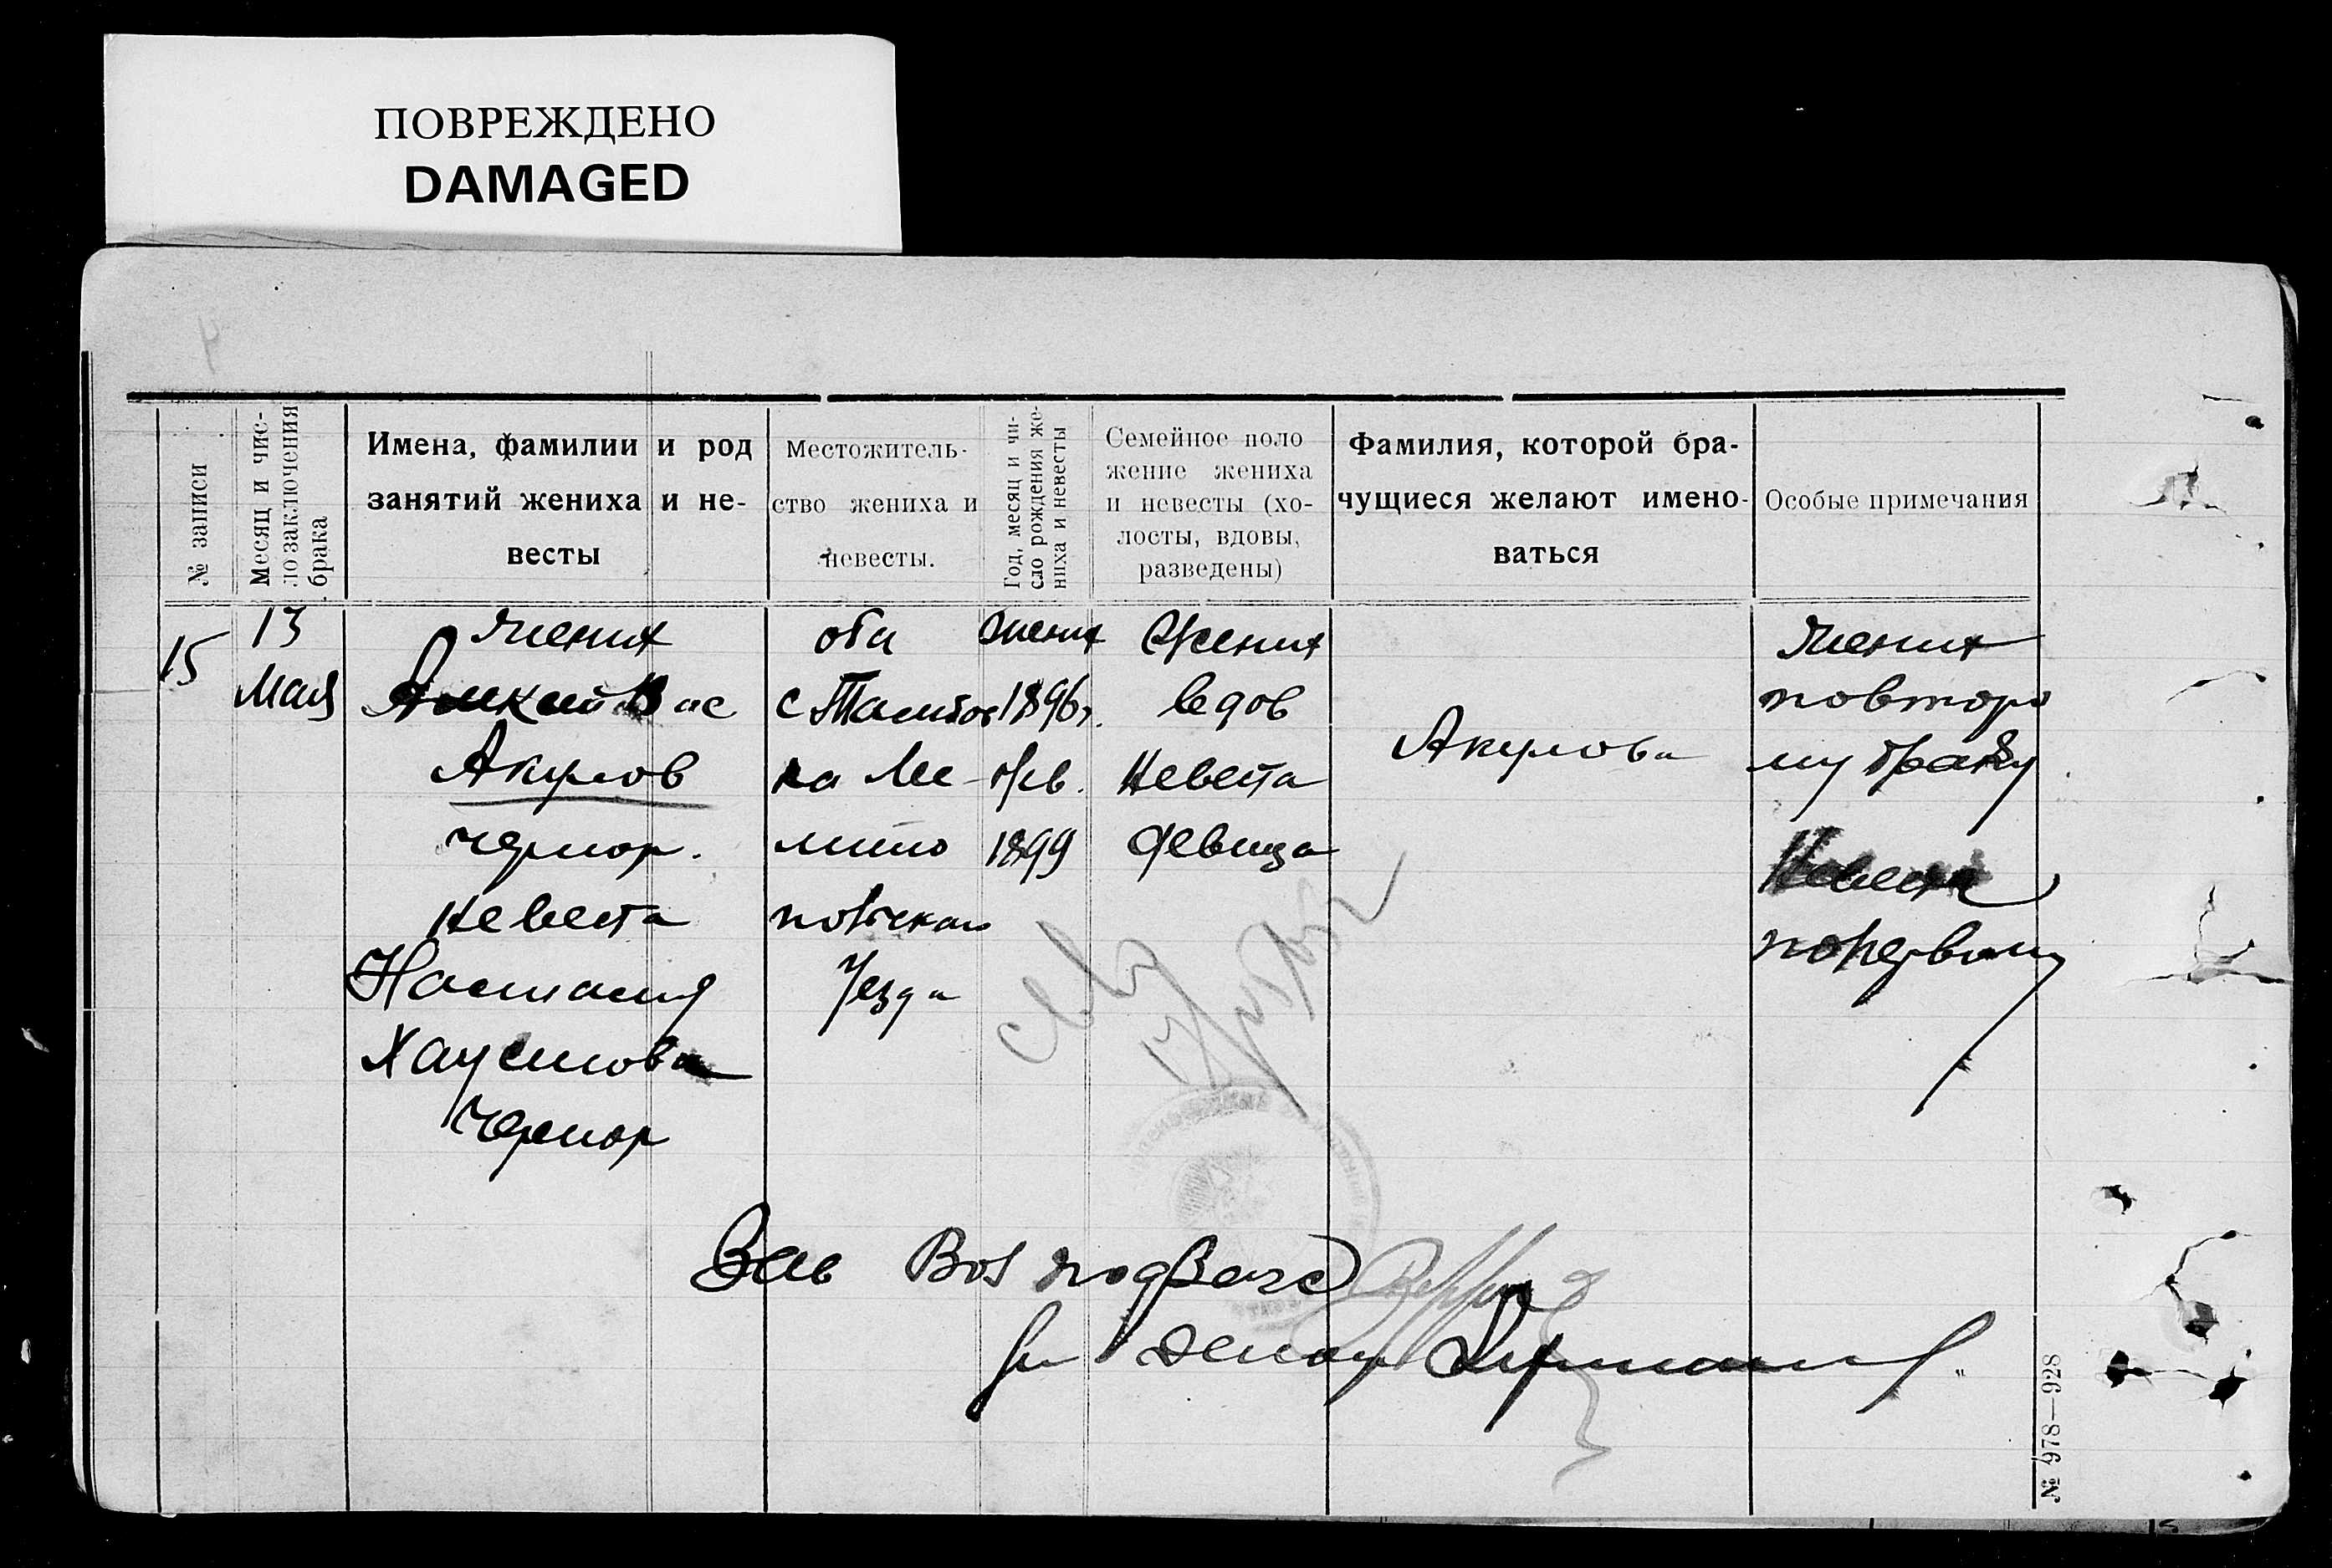 ПОВРЕЖДЕНО
DAMAGED
№ записи
Месяц и чис-
ло заключения
брака
Имена, фамилии и род
занятий жениха и не-
весты
Местожитель-
ство жениха и
невесты.
Год, месяц и чи-
сло рождения же-
ниха и невесты
Семейное поло
жение жениха
и невесты (хо-
лосты, вдовы,
разведены)
Фамилия, которой бра-
чущиеся желают имено-
ваться
Особые примечания
15
13
Мая
жених
Алексей Вас
Акулов
чернор.
невеста
Настасия
Хаустова
Чернор
оба
с Тамбов
ка Ме-
лито
польскаго
Уезда
жених
1896 г.
1899
Жених
вдов
Невеста
девица
Акулова
Жених
повторо
му браку
Невеста
по первому
Зав
№ 978—928